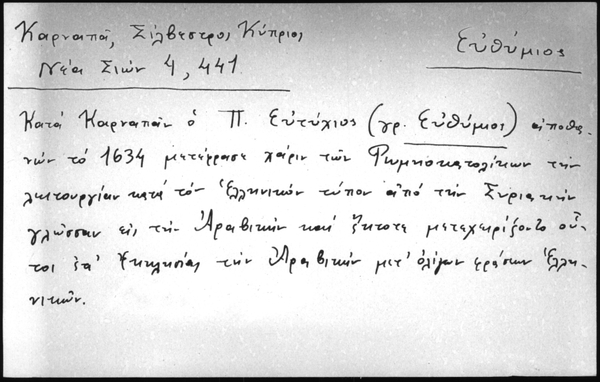 Καρναπᾶ, Σίλβεστρος Κύπριος
Εὐθύμιος
Νέα Σιών 4, 441
Κατά Καρναπᾶν ὁ Π. Εὐτύχιος (γρ. Εὐθύμιος) ἀποθα-
νών τό 1634 μετέφρασε χάριν τῶν Ρωμηοκατολίκων τήν
λειτουργίαν κατά τόν Ἑλληνικόν τύπον ἀπό τήν Συριακήν
γλῶσσαν εἰς τήν Ἀραβικήν καί ἔκτοτε μετεχειρίζοντο οὗ-
τοι ἐν Ἐκκλησίας τήν Ἀραβικήν μετ' ὀλίγων φράσεων Ἑλλη-
νικῶν.